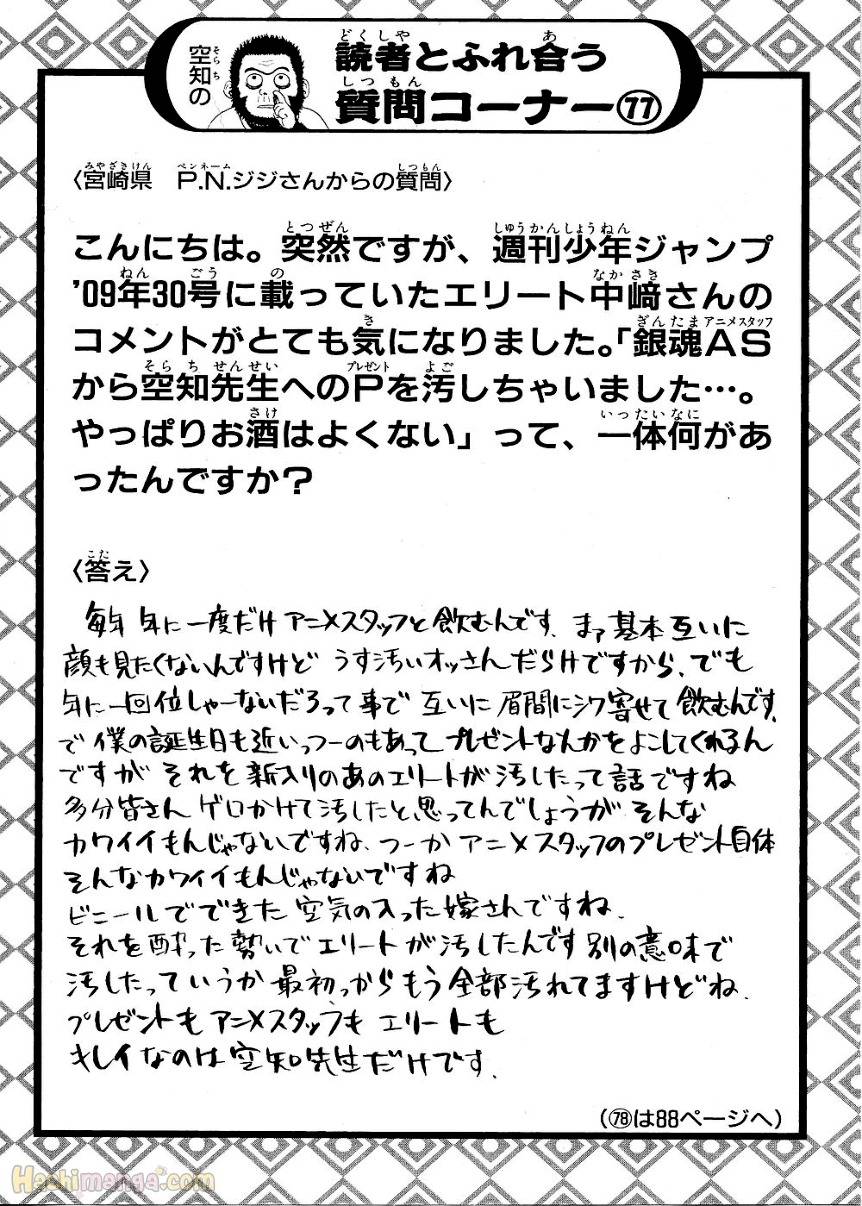 空知の
読者とふれ合う
質問コーナー77
〈宮崎県 P.N.ジジさんからの質問〉
こんにちは。突然ですが、週刊少年ジャンプ
'09年30号に載っていたエリート中﨑さんの
コメントがとても気になりました。「銀魂AS
から空知先生へのPを汚しちゃいました…。
やっぱりお酒はよくない」って、一体何があ
ったんですか?
〈答え〉
毎年 年に一度だけ アニメスタッフと飲むんです。まァ基本互いに
顔も見たくないんですけど うす汚いオッさんだらけですから、でも
年に一回位しゃーないだろって事で 互いに眉間にシワ寄せて飲むんです。
で 僕の誕生日も近いっつーのもあって プレゼントなんかをよこしてくれるん
ですが それを新入りのあのエリートが汚したって話ですね
多分皆さん ゲロかけて汚したと思ってんでしょうが そんな
カワイイもんじゃないですね、つーか アニメスタッフのプレゼント自体
そんなカワイイもんじゃないですね
ビニールでできた 空気の入った嫁さんですね、
それを酔った勢いでエリートが汚したんです 別の意味で
汚したっていうか 最初っからもう全部汚れてますけどね、
プレゼントも アニメスタッフも エリートも
キレイなのは空知先生だけです。
(78は88ページへ)
Hachimanga.com